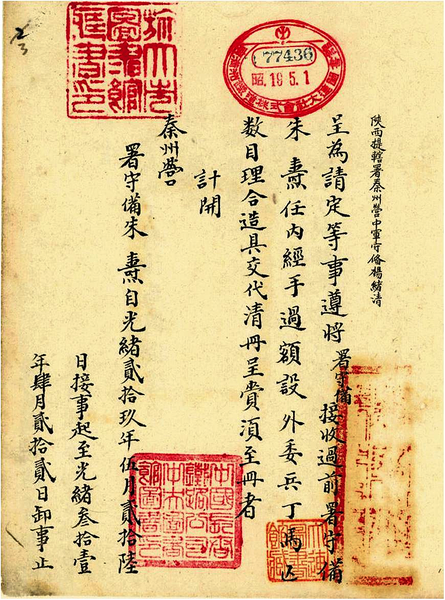 陝西提轄署秦州營中軍守俻楊緒清
呈為請定等事遵將署守備接收過前署守備
朱 燾任內經手過額設外委兵丁馬匹
数目理合造具交代清冊呈賫須至冊者
計開
秦州營
署守備朱 燾自光緒貳拾玖年伍月貳拾陸
日接事起至光緒叁拾壹
年肆月貳拾貳日卸事止
77436
昭.19.5.1
旅大市
圖書館
藏書印